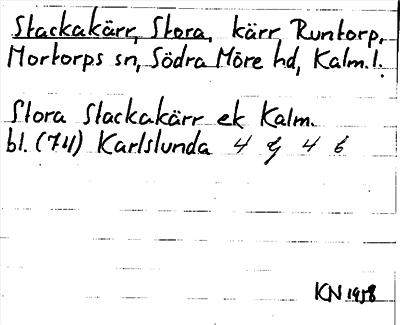 Stackakärr, Stora, kärr Runtorp,
Mortorps sn, Södra Möre hd, Kalm. l.
Stora Stackakärr ek Kalm.
bl. (711) Karlslunda 4 g 4 6
KN 1958